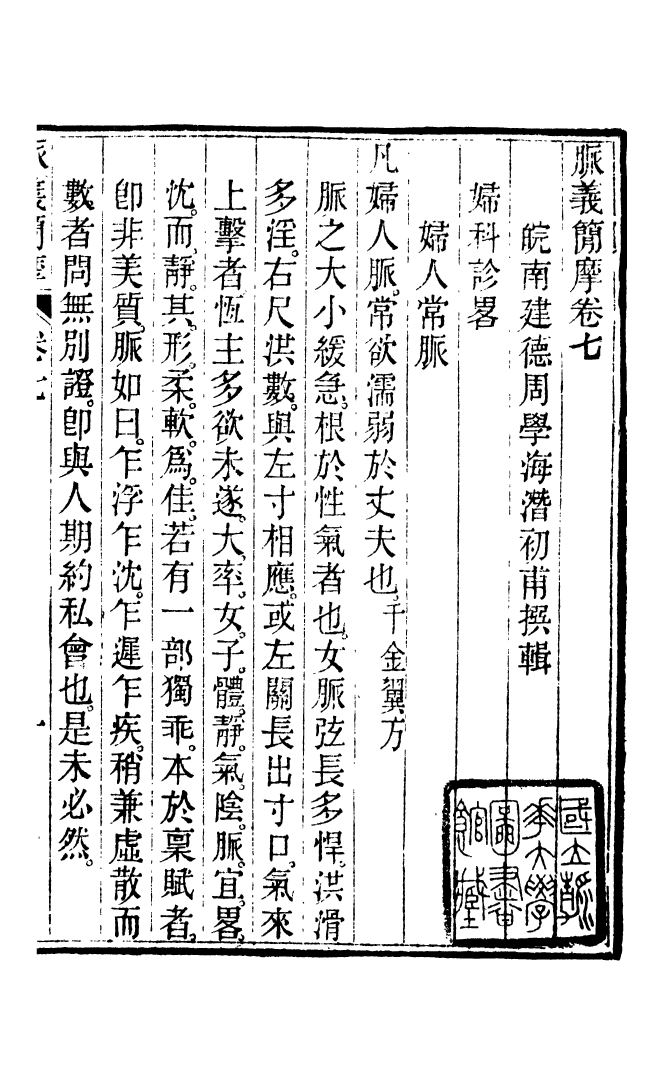 脈義簡摩卷七
皖南建德周學海潛初甫撰輯
婦科診畧
婦人常脈
凡婦人脈。常欲濡弱於丈夫也。千金翼方
脈之大小緩急。根於性氣者也。女脈弦長多悍。洪滑
多淫。右尺洪數。與左寸相應。或左關長出寸口。氣來
上擊者恆主多欲未遂。大率。女子。體靜。氣陰。脈宜。畧
沈。而靜。其形。柔。軟。爲。佳。若有一部獨乖。本於稟賦者。
卽非美質。脈如曰。乍浮乍沈。乍遲乍疾。稍兼虛散而
數者問無別證。卽與人期約私會也。是未必然。
脈義簡摩 卷七 一
國立清華大學圖書館藏